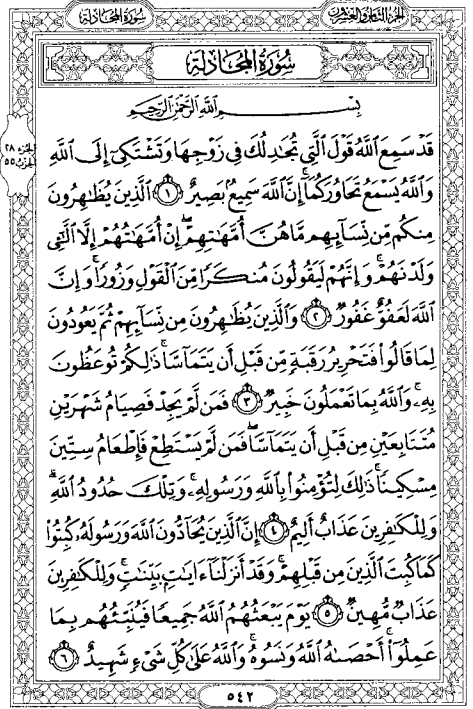 الجزء الثامن والعشرون
سورة المجادلة
سُورَةُ المُجَادلَةِ
بِسْمِ ٱللَّهِ ٱلرَّحْمَٰنِ ٱلرَّحِيمِ
الجزء ٢٨
الحزب ٥٥
قَدْ سَمِعَ ٱللَّهُ قَوْلَ ٱلَّتِى تُجَٰدِلُكَ فِى زَوْجِهَا وَتَشْتَكِىٓ إِلَى ٱللَّهِ
وَٱللَّهُ يَسْمَعُ تَحَاوُرَكُمَآ ۚ إِنَّ ٱللَّهَ سَمِيعٌۢ بَصِيرٌ ١ ٱلَّذِينَ يُظَٰهِرُونَ
مِنكُم مِّن نِّسَآئِهِم مَّا هُنَّ أُمَّهَٰتِهِمْ ۖ إِنْ أُمَّهَٰتُهُمْ إِلَّا ٱلَّٰٓـِٔى
وَلَدْنَهُمْ ۚ وَإِنَّهُمْ لَيَقُولُونَ مُنكَرًا مِّنَ ٱلْقَوْلِ وَزُورًا ۚ وَإِنَّ
ٱللَّهَ لَعَفُوٌّ غَفُورٌ ٢ وَٱلَّذِينَ يُظَٰهِرُونَ مِن نِّسَآئِهِمْ ثُمَّ يَعُودُونَ
لِمَا قَالُوا۟ فَتَحْرِيرُ رَقَبَةٍ مِّن قَبْلِ أَن يَتَمَآسَّا ۚ ذَٰلِكُمْ تُوعَظُونَ
بِهِۦ ۚ وَٱللَّهُ بِمَا تَعْمَلُونَ خَبِيرٌ ٣ فَمَن لَّمْ يَجِدْ فَصِيَامُ شَهْرَيْنِ
مُتَتَابِعَيْنِ مِن قَبْلِ أَن يَتَمَآسَّا ۖ فَمَن لَّمْ يَسْتَطِعْ فَإِطْعَامُ سِتِّينَ
مِسْكِينًا ۚ ذَٰلِكَ لِتُؤْمِنُوا۟ بِٱللَّهِ وَرَسُولِهِۦ ۚ وَتِلْكَ حُدُودُ ٱللَّهِ ۗ
وَلِلْكَٰفِرِينَ عَذَابٌ أَلِيمٌ ٤ إِنَّ ٱلَّذِينَ يُحَآدُّونَ ٱللَّهَ وَرَسُولَهُۥ كُبِتُوا۟
كَمَا كُبِتَ ٱلَّذِينَ مِن قَبْلِهِمْ ۚ وَقَدْ أَنزَلْنَآ ءَايَٰتٍۭ بَيِّنَٰتٍ ۚ وَلِلْكَٰفِرِينَ
عَذَابٌ مُّهِينٌ ٥ يَوْمَ يَبْعَثُهُمُ ٱللَّهُ جَمِيعًا فَيُنَبِّئُهُم بِمَا
عَمِلُوٓا۟ ۚ أَحْصَىٰهُ ٱللَّهُ وَنَسُوهُ ۚ وَٱللَّهُ عَلَىٰ كُلِّ شَىْءٍ شَهِيدٌ ٦
٥٤٢